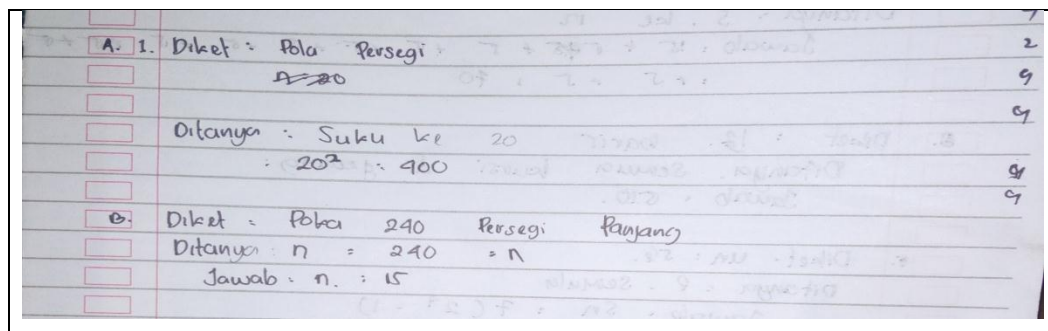 A. 1. Diket : Pola Persegi
Ditanya : Suku ke 20
: 20² : 400
B. Diket : Pola 240 Persegi Panjang
Ditanya : n = 240 = n
Jawab : n. : 15